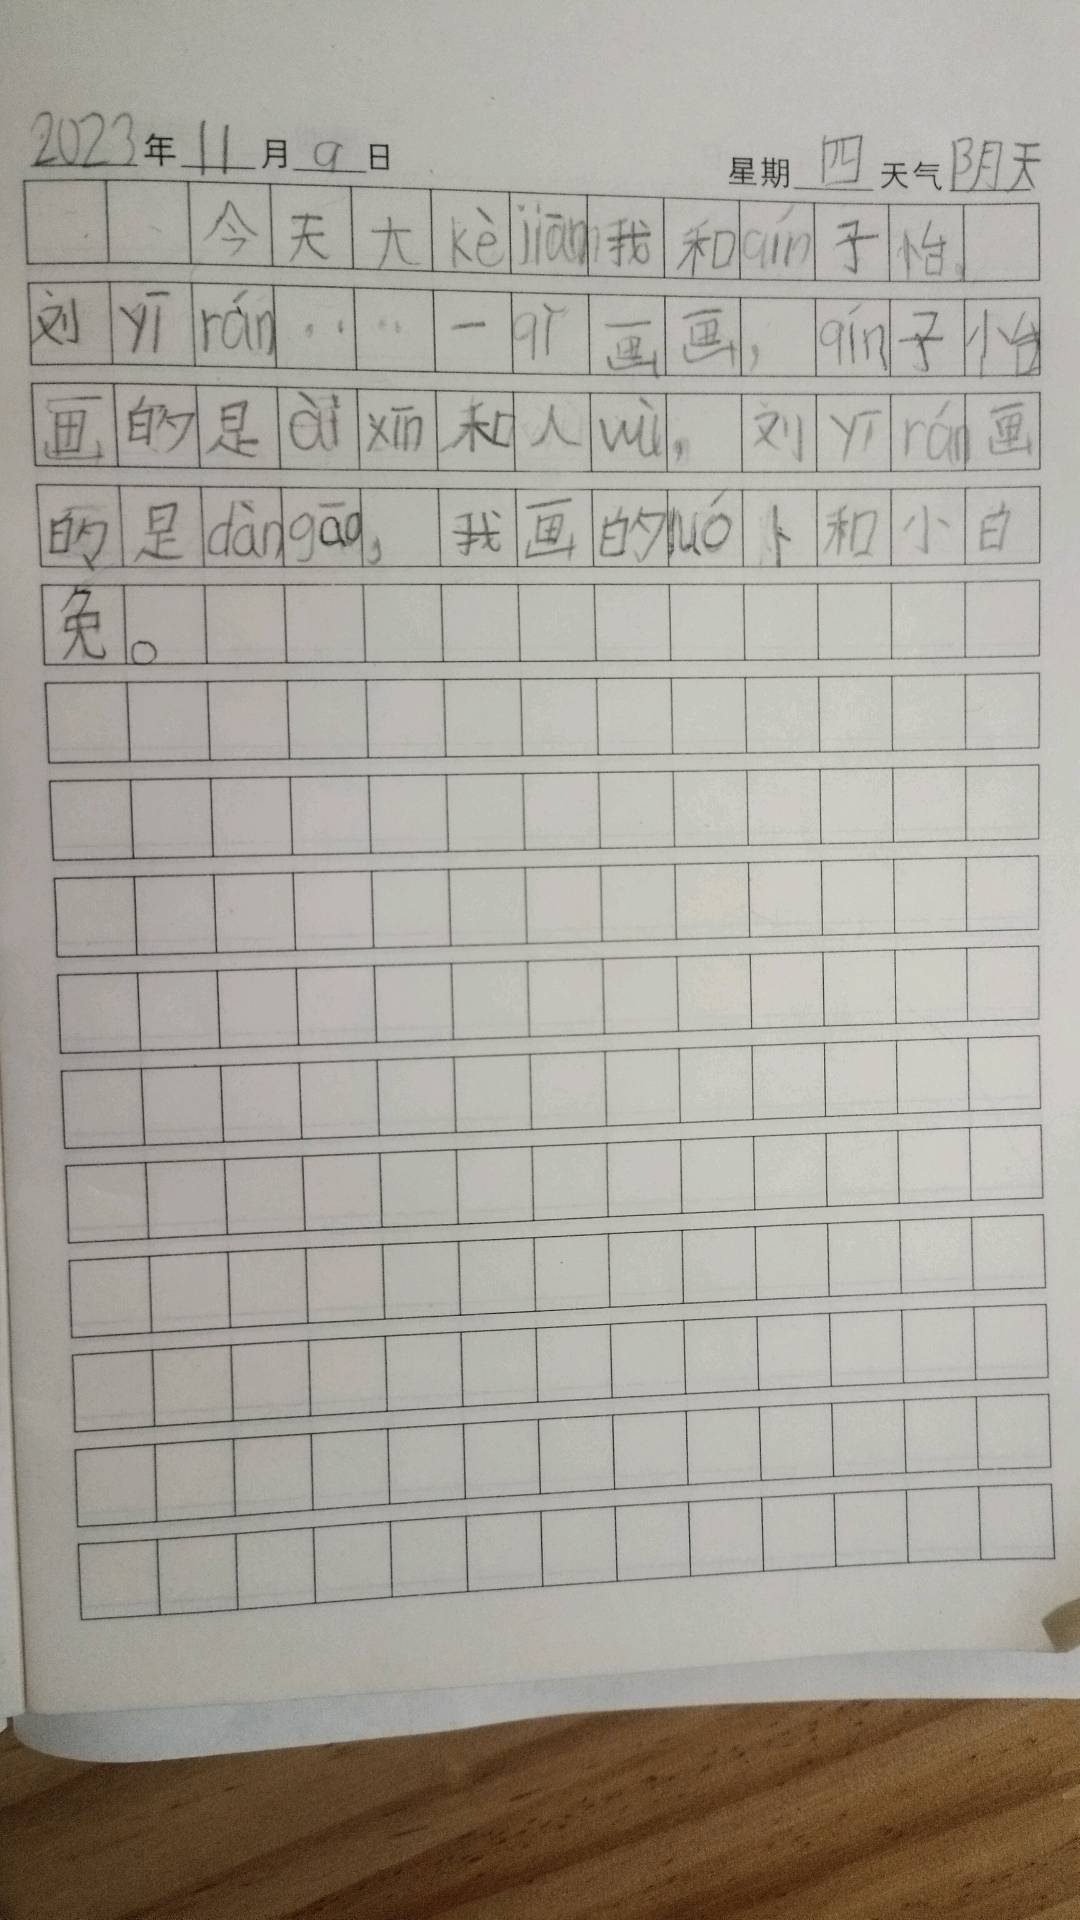 2023年11月9日 星期四天气阴天
今天大kèjiān我和qín子怡、
刘yīrán……一qǐ画画，qín子怡
画的是àixīn和人wù，刘yīrán画
的是dàngāo，我画的luó卜和小白
兔。